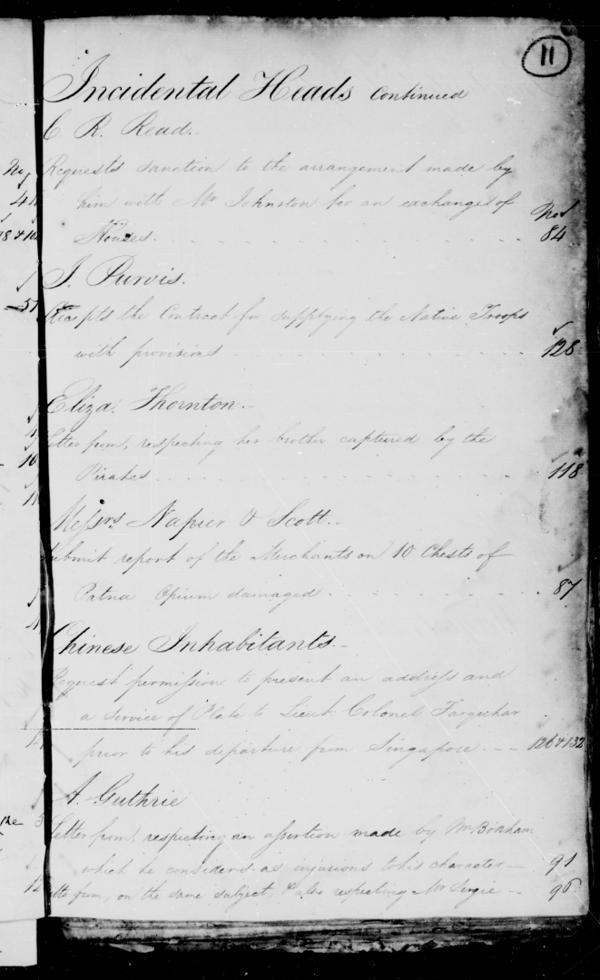 11
Incidental Heads Continued
C. R. Read.
Requests sanction to the arrangement made by
him with Mr Johnston for an exchange of
Houses. Nos 84
J. Purvis.
Accepts the Contract for supplying the Native Troops
with provisions 128
Eliza Thornton.
Letter from, respecting her brother captured by the
Pirates 118
Messrs Napier & Scott.
Submit report of the Merchants on 10 Chests of
Patna Opium damaged 87
Chinese Inhabitants.
Request permission to present an address and
a Service of Plate to Lieut. Colonel Farquhar
prior to his departure from Singapore 126 & 132
A. Guthrie
Letter from, respecting an assertion made by Mr Bonham
which he considers as injurious to his character 91
Letter from, on the same subject, & also respecting Mr 96